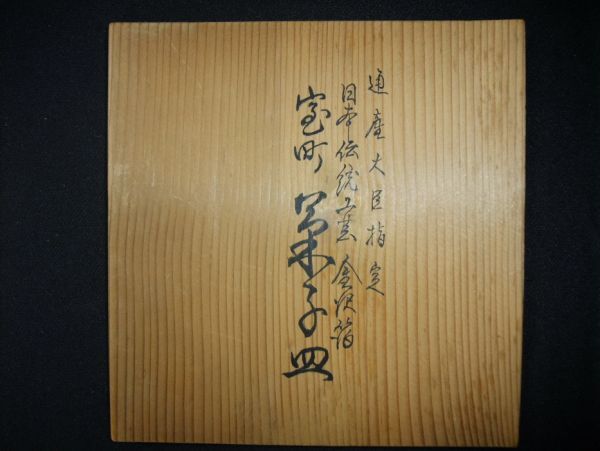 通産大臣指定
日本伝統工芸 金沢箔
室町 菓子皿